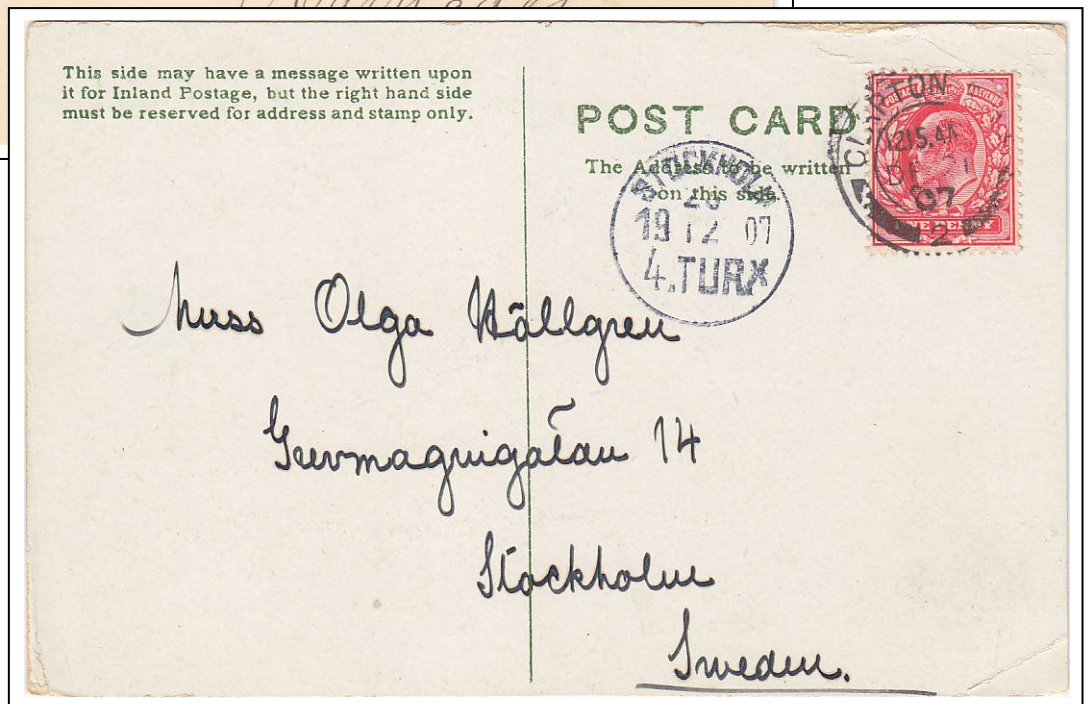 This side may have a message written upon
it for Inland Postage, but the right hand side
must be reserved for address and stamp only.
POST CARD
The Address to be written
on this side.
CLAPTON
12.15.AM
DE
07
2
STOCKHOLM
20
19 12 07
4.TUR
Miss Olga Hällgren
Grevmagnigatan 14
Stockholm
Sweden.